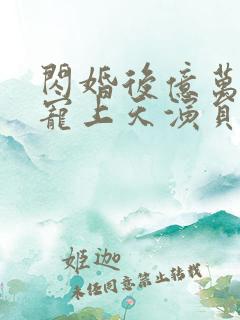 閃婚後億萬
寵上天演員
姬迦
未任同意禁止轉載